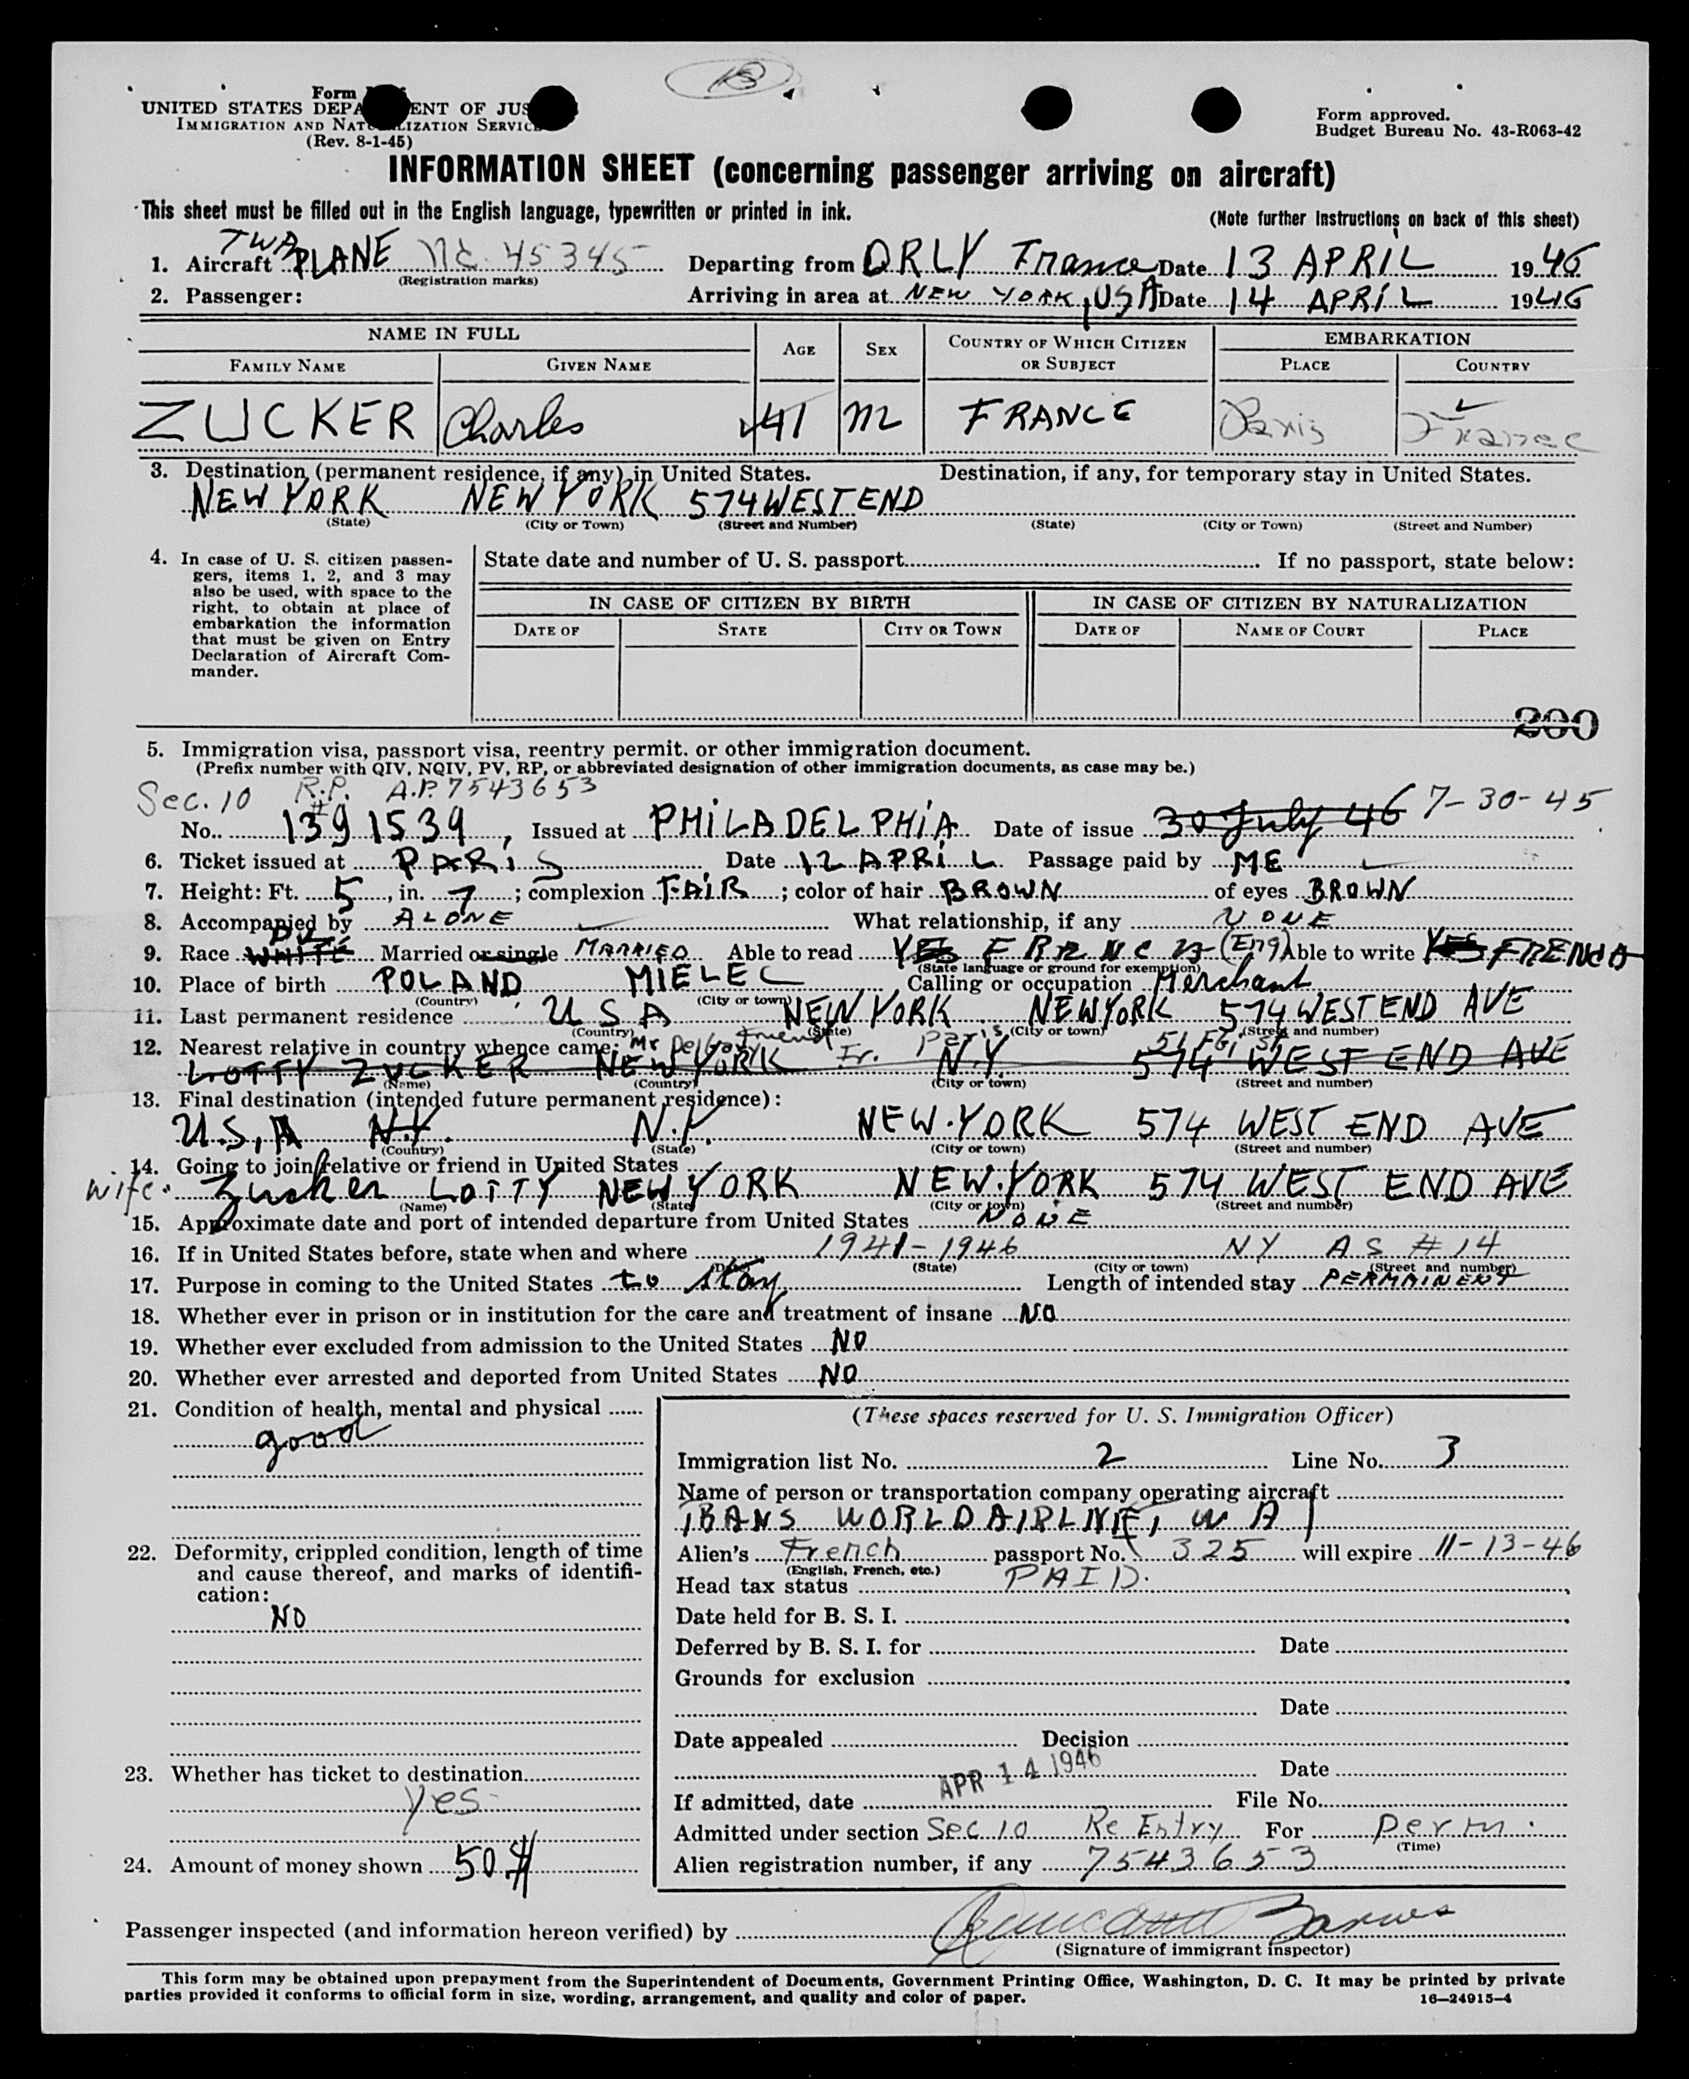 Form
UNITED STATES DEPA ENT OF JUS
IMMIGRATION AND NATU LIZATION SERVIC
(Rev. 8-1-45)
Form approved.
Budget Bureau No. 43-R063-42
INFORMATION SHEET (concerning passenger arriving on aircraft)
This sheet must be filled out in the English language, typewritten or printed in ink.
(Note further instructions on back of this sheet)
1. Aircraft TWA PLANE NC 45345 Departing from ORLY France Date 13 APRIL 1946
(Registration marks)
2. Passenger: Arriving in area at NEW YORK, USA Date 14 APRIL 1946
NAME IN FULL AGE SEX COUNTRY OF WHICH CITIZEN OR SUBJECT EMBARKATION
FAMILY NAME GIVEN NAME PLACE COUNTRY
ZUCKER Charles 41 M FRANCE Paris France
3. Destination (permanent residence, if any) in United States. Destination, if any, for temporary stay in United States.
NEW YORK NEW YORK 574 WEST END
(State) (City or Town) (Street and Number) (State) (City or Town) (Street and Number)
4. In case of U. S. citizen passen-
gers, items 1, 2, and 3 may
also be used, with space to the
right, to obtain at place of
embarkation the information
that must be given on Entry
Declaration of Aircraft Com-
mander.
State date and number of U. S. passport If no passport, state below:
IN CASE OF CITIZEN BY BIRTH IN CASE OF CITIZEN BY NATURALIZATION
DATE OF STATE CITY OR TOWN DATE OF NAME OF COURT PLACE
200
5. Immigration visa, passport visa, reentry permit, or other immigration document.
(Prefix number with QIV, NQIV, PV, RP, or abbreviated designation of other immigration documents, as case may be.)
Sec. 10 R.P. # A.P. 7543653
No. 1391539, Issued at PHILADELPHIA Date of issue 30 July 46 7-30-45
6. Ticket issued at PARIS, Date 12 APRIL Passage paid by ME
7. Height: Ft. 5, in. 7; complexion FAIR; color of hair BROWN of eyes BROWN
8. Accompanied by ALONE What relationship, if any NONE
9. Race WHITE Married or single MARRIED Able to read YES FRENCH (Eng) Able to write YES FRENCH
(State language or ground for exemption)
10. Place of birth POLAND MIELEC Calling or occupation Merchant
(Country) (City or town)
11. Last permanent residence USA NEW YORK NEW YORK 574 WEST END AVE
(Country) (State) (City or town) (Street and number)
12. Nearest relative in country whence came: Mr friend Fr. Paris 51 St
LOTTY ZUCKER NEW YORK N.Y. 574 WEST END AVE
(Name) (Country) (City or town) (Street and number)
13. Final destination (intended future permanent residence):
U.S.A N.Y. N.Y. NEW.YORK 574 WEST END AVE
(Country) (State) (City or town) (Street and number)
14. Going to join relative or friend in United States
wife. Zucker LOTTY NEW YORK NEW.YORK 574 WEST END AVE
(Name) (State) (City or town) (Street and number)
15. Approximate date and port of intended departure from United States NONE
16. If in United States before, state when and where 1941-1946 NY AS #14
(State) (City or town) (Street and number)
17. Purpose in coming to the United States to stay Length of intended stay PERMAINENT
18. Whether ever in prison or in institution for the care and treatment of insane NO
19. Whether ever excluded from admission to the United States NO
20. Whether ever arrested and deported from United States NO
21. Condition of health, mental and physical
good
22. Deformity, crippled condition, length of time
and cause thereof, and marks of identifi-
cation:
NO
23. Whether has ticket to destination
Yes
24. Amount of money shown 50 $
(These spaces reserved for U. S. Immigration Officer)
Immigration list No. 2 Line No. 3
Name of person or transportation company operating aircraft
TRANS WORLD AIRLINE, W A
Alien's French passport No. 325 will expire 11-13-46
(English, French, etc.)
Head tax status PAID.
Date held for B. S. I.
Deferred by B. S. I. for Date
Grounds for exclusion
Date
Date appealed Decision
Date
APR 14 1946
If admitted, date File No.
Admitted under section Sec 10 Re Entry For perm.
(Time)
Alien registration number, if any 7543653
Passenger inspected (and information hereon verified) by
(Signature of immigrant inspector)
This form may be obtained upon prepayment from the Superintendent of Documents, Government Printing Office, Washington, D. C. It may be printed by private
parties provided it conforms to official form in size, wording, arrangement, and quality and color of paper.
16—24915-4